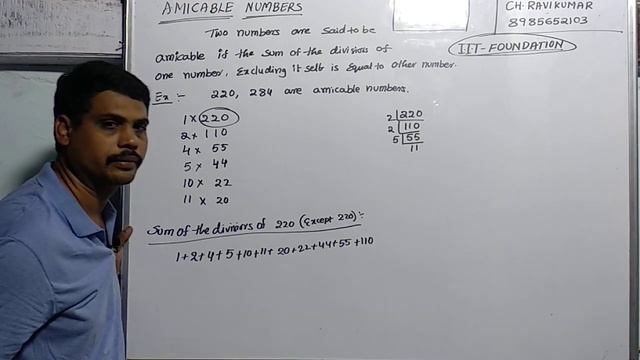 AMICABLE NUMBERS
CH. RAVIKUMAR
8985652103
IIT-FOUNDATION
Two numbers are said to be
amicable if the sum of the divisiors of
one number, Excluding it self is Equal to other number.
Ex :- 220, 284 are amicable numbers.
1 × 220
2 × 110
4 × 55
5 × 44
10 × 22
11 × 20
2 220
2 110
5 55
11
Sum of the divisiors of 220 (Except 220) :-
1+2+4+5+10+11+20+22+44+55+110